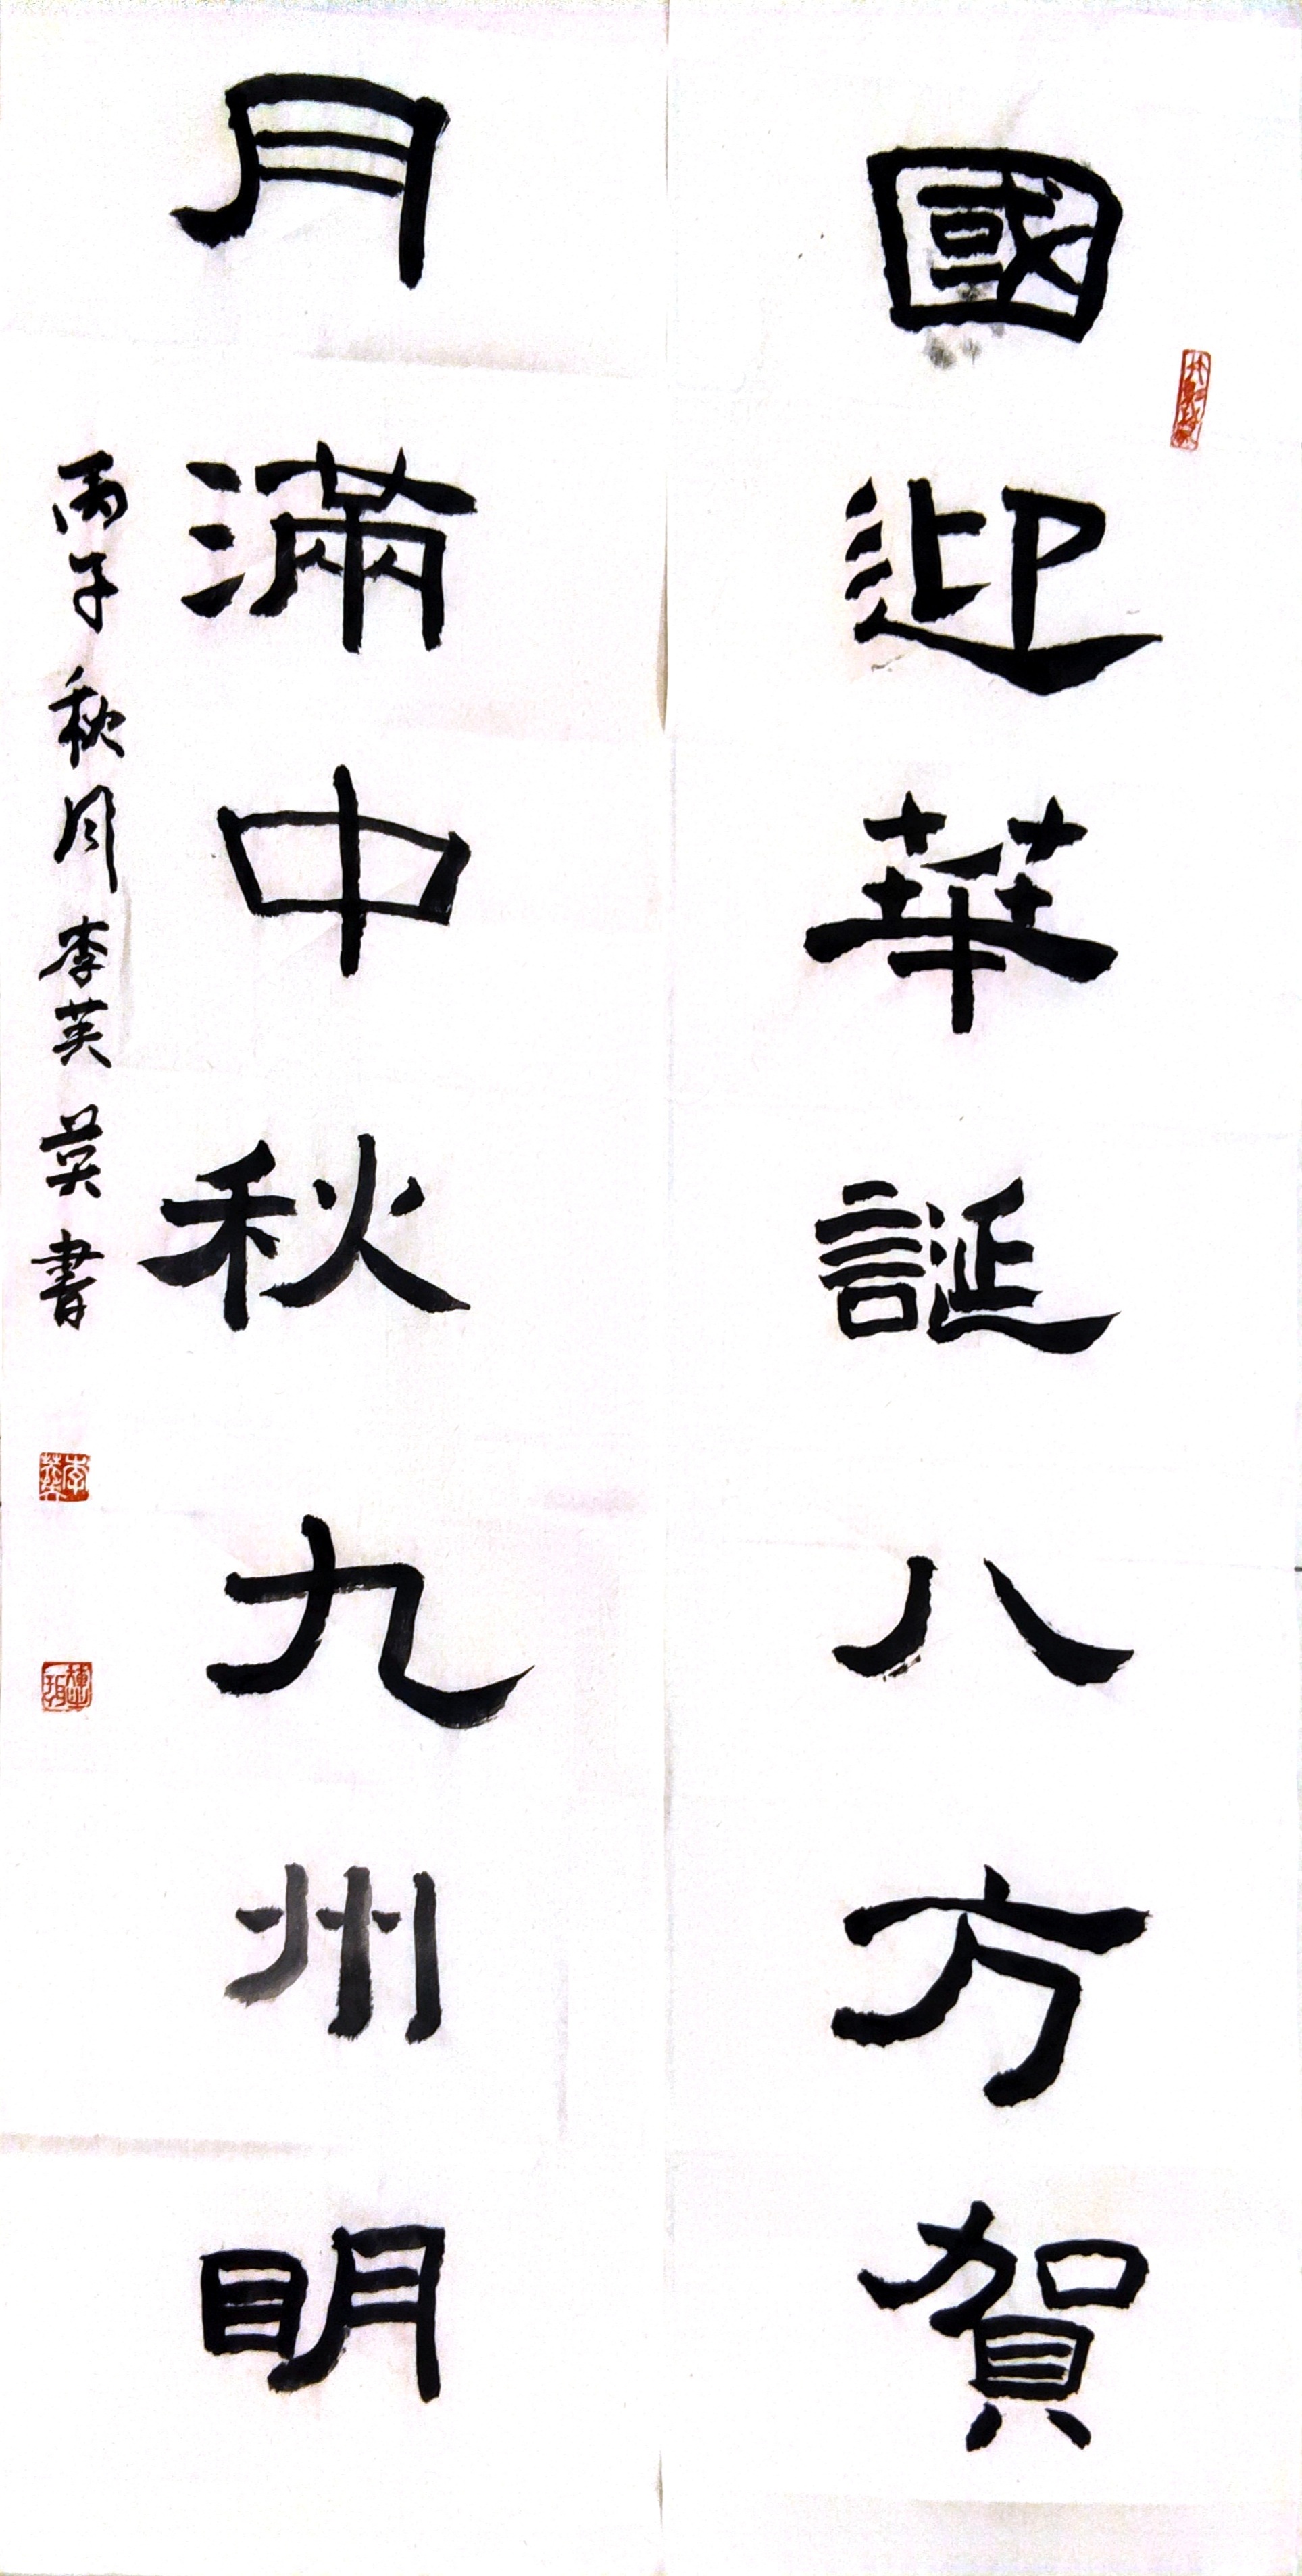 國迎華誕八方賀
月滿中秋九州明
丙子秋月李芙英書